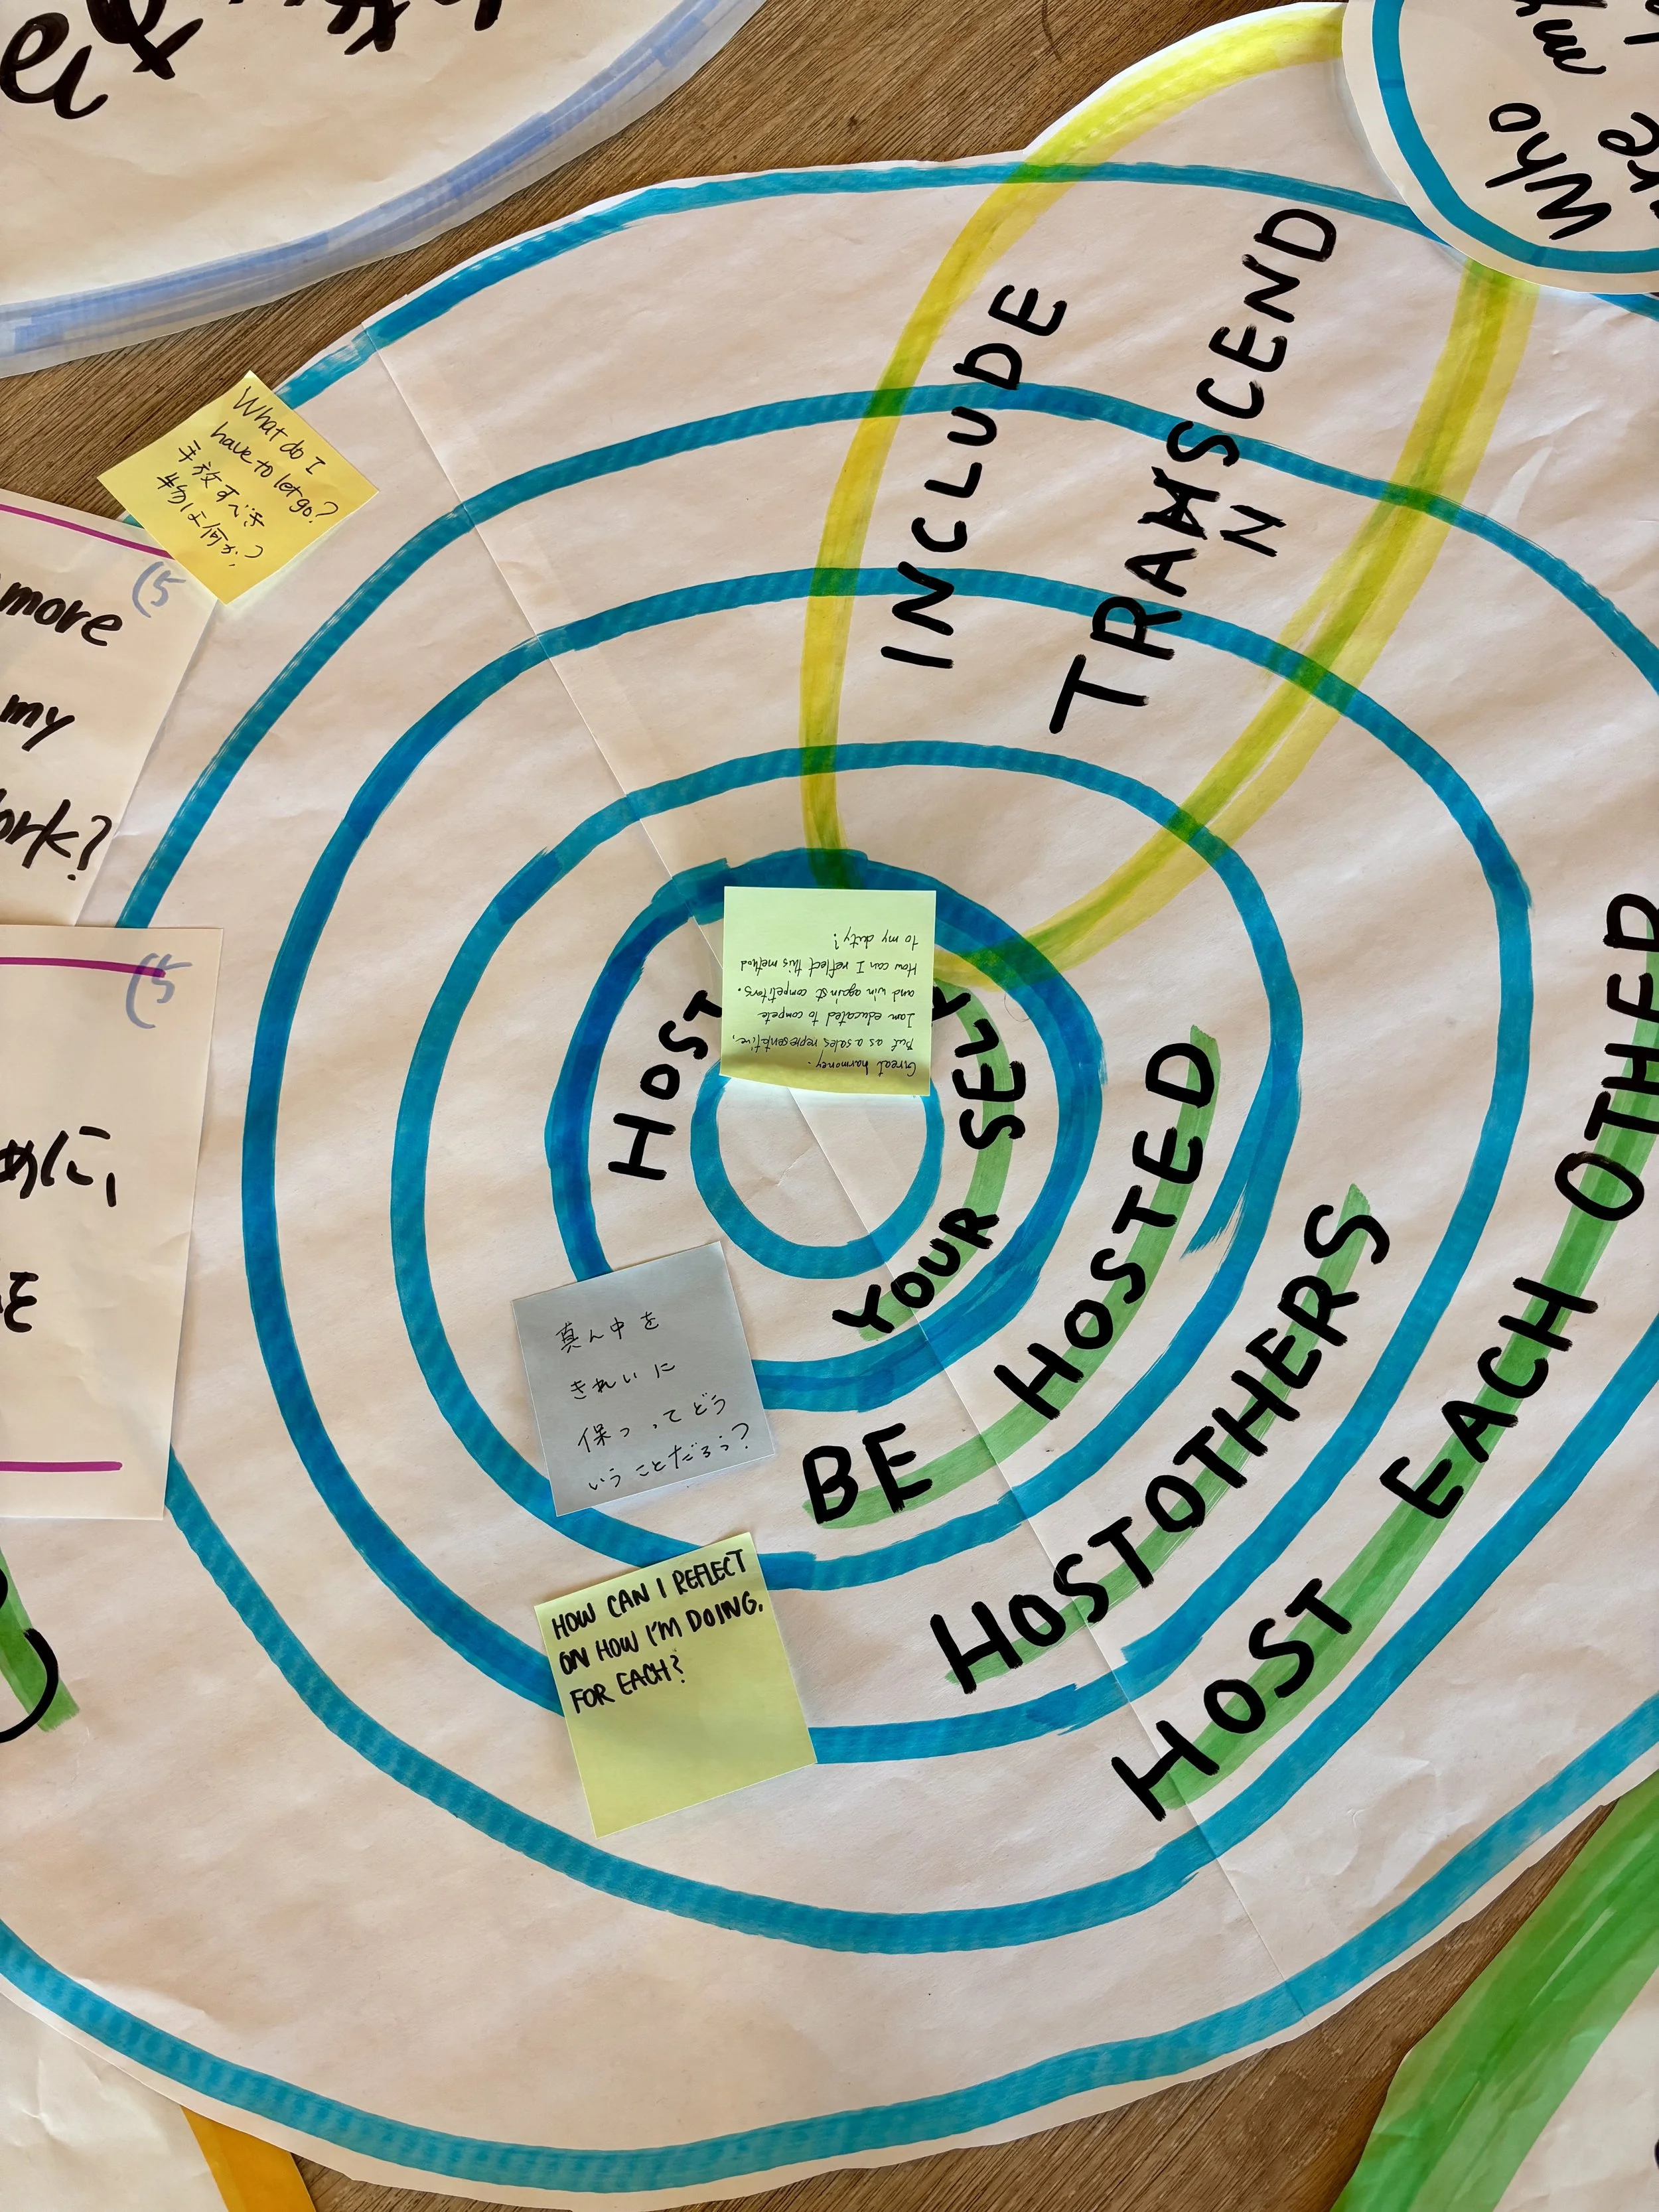 Who
INCLUDE
TRANSCEND
N
What do I
have to let go?
手放すべき
物は何か?
(5
more
my
ork?
(5
めに,
を
Great harmoney.
But as a sales representive,
I am educated to compete
and win against competitors.
How can I reflect this method
to my duty?
HOST
YOUR SELF
BE HOSTED
HOST OTHERS
HOST EACH OTHER
真ん中を
きれいに
保つってどう
いうことだろう?
HOW CAN I REFLECT
ON HOW I'M DOING.
FOR EACH?